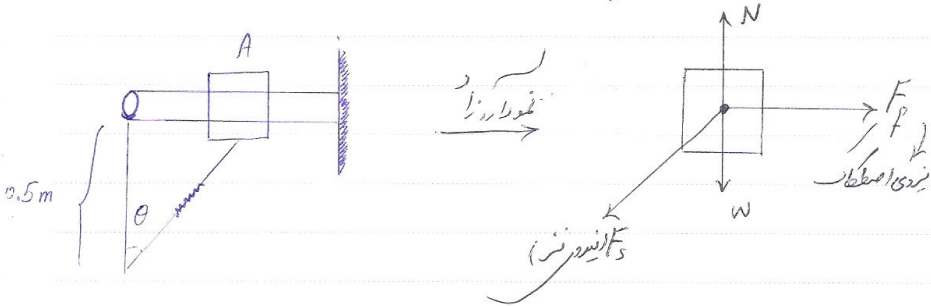 A
0.5m
θ
نمودار آزاد
N
F
f
نیروی اصطکاک
W
Fs (نیروی فنر)